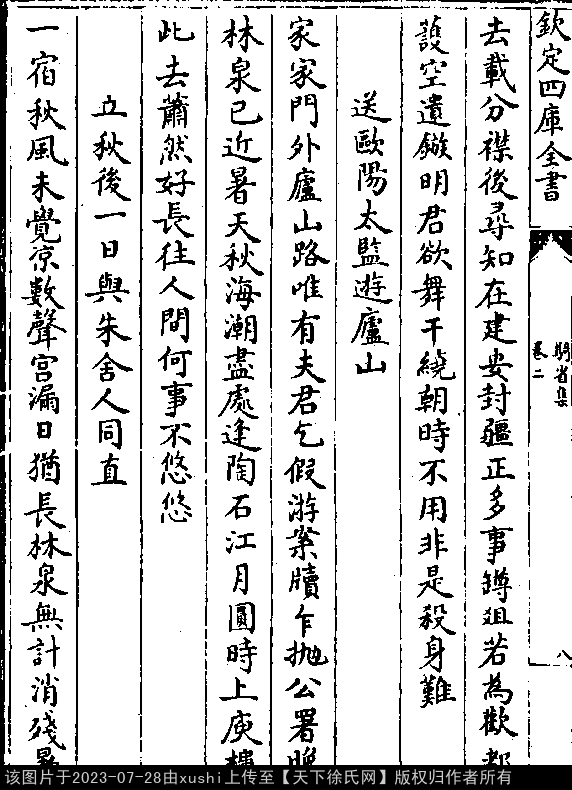 欽定四庫全書
騎省集
卷二
八
去載分襟後尋知在建安封疆正多事罇俎若為歡
護空遺鏃明君欲舞干繞朝時不用非是殺身難
送歐陽太監遊廬山
家家門外廬山路唯有夫君乞假游案牘乍拋公署晚
林泉已近暑天秋海潮盡處逢陶石江月圓時上庾樓
此去蕭然好長往人間何事不悠悠
立秋後一日與朱舍人同直
一宿秋風未覺涼數聲宮漏日猶長林泉無計消殘暑
该图片于2023-07-28由xushi上传至【天下徐氏网】版权归作者所有